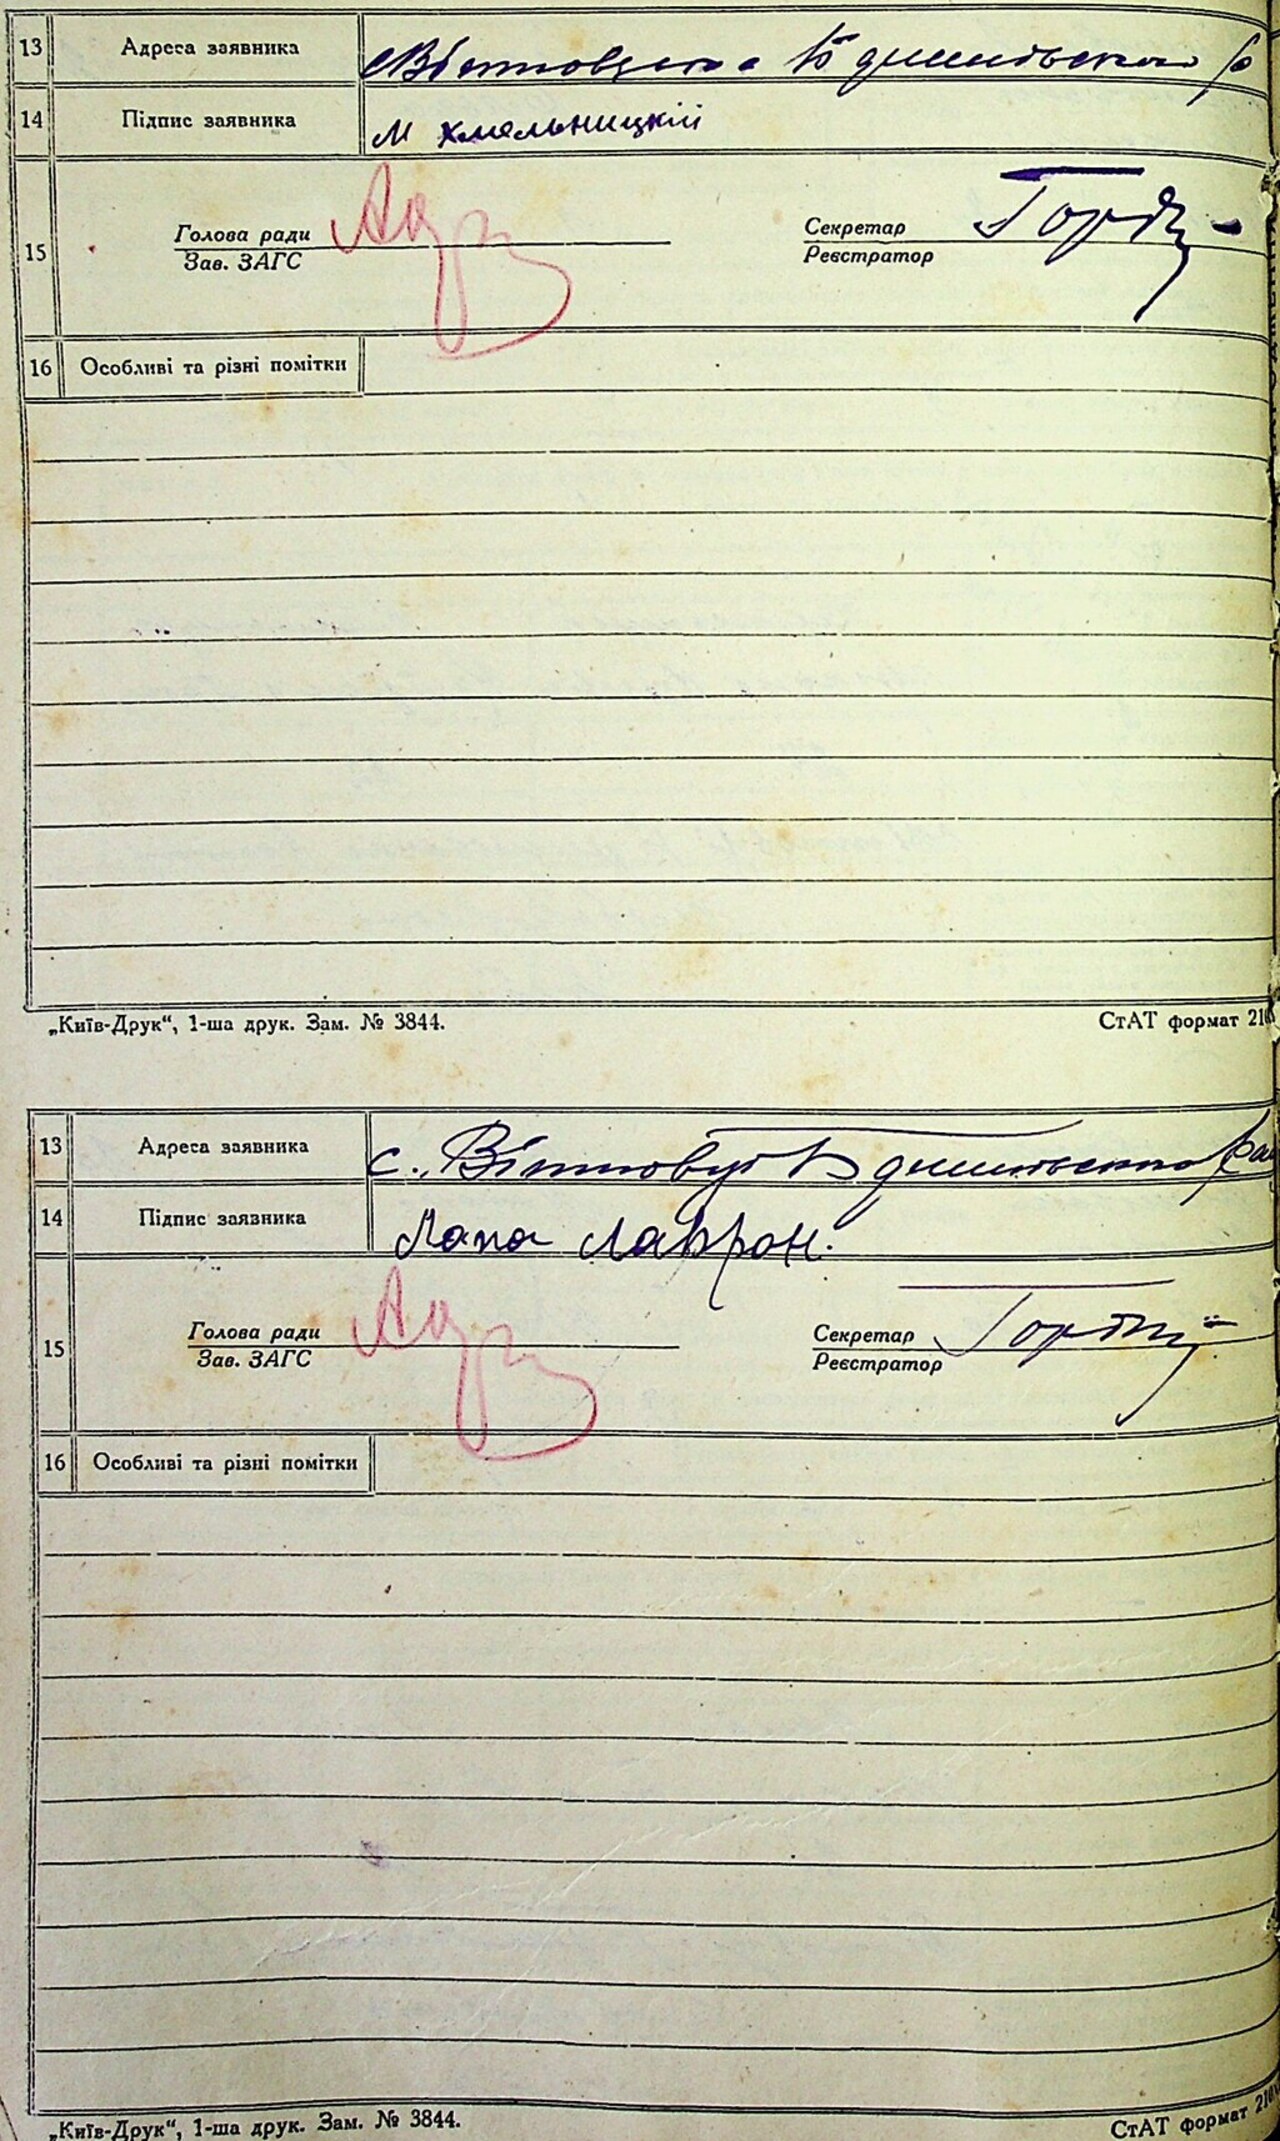 13 Адреса заявника
14 Підпис заявника М Хмельницкій
15 Голова ради Секретар
Зав. ЗАГС Реєстратор
16 Особливі та різні помітки
„Київ-Друк“, 1-ша друк. Зам. № 3844. СтАТ формат 210
13 Адреса заявника с.
14 Підпис заявника Лапа Лаврон.
15 Голова ради Секретар
Зав. ЗАГС Реєстратор
16 Особливі та різні помітки
„Київ-Друк“, 1-ша друк. Зам. № 3844. СтАТ формат 210